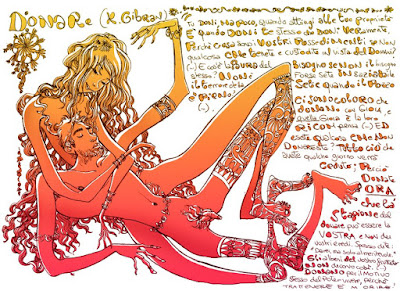 DONARE (K. GIBRAN)
Tu Doni ma poco, quando attingi alle tue proprietà
È quando DONI te stesso che DONI VERAMENTE,
Perché cosa sono i VOSTRI Possedimenti se non
qualcosa che tenete e custodite
(...) E cos'è la PAURA del Bisogno se non il bisogno
stesso? E NON È
il terrore della Sete quando il Pozzo
è PIENO
(...)
Ci sono COLORO che
DONANO con Gioia, e
quella Gioia è la loro
RICOMPENSA (...) ED
esiste qualcosa CHE NON
DONERESTE? TUTTO CIÒ che
avete qualche giorno verrà
Ceduto; Perciò
DONATE
ORA
che la
Stagione del
donare può essere la
VOSTRA e non dei
vostri eredi. Spesso dite:
Gli alberi del vostro frutteto
NON dicono così. (...)
DONANO per il MOTIVO
stesso del Poter vivere, perché
TRATTENERE È MORIRE!